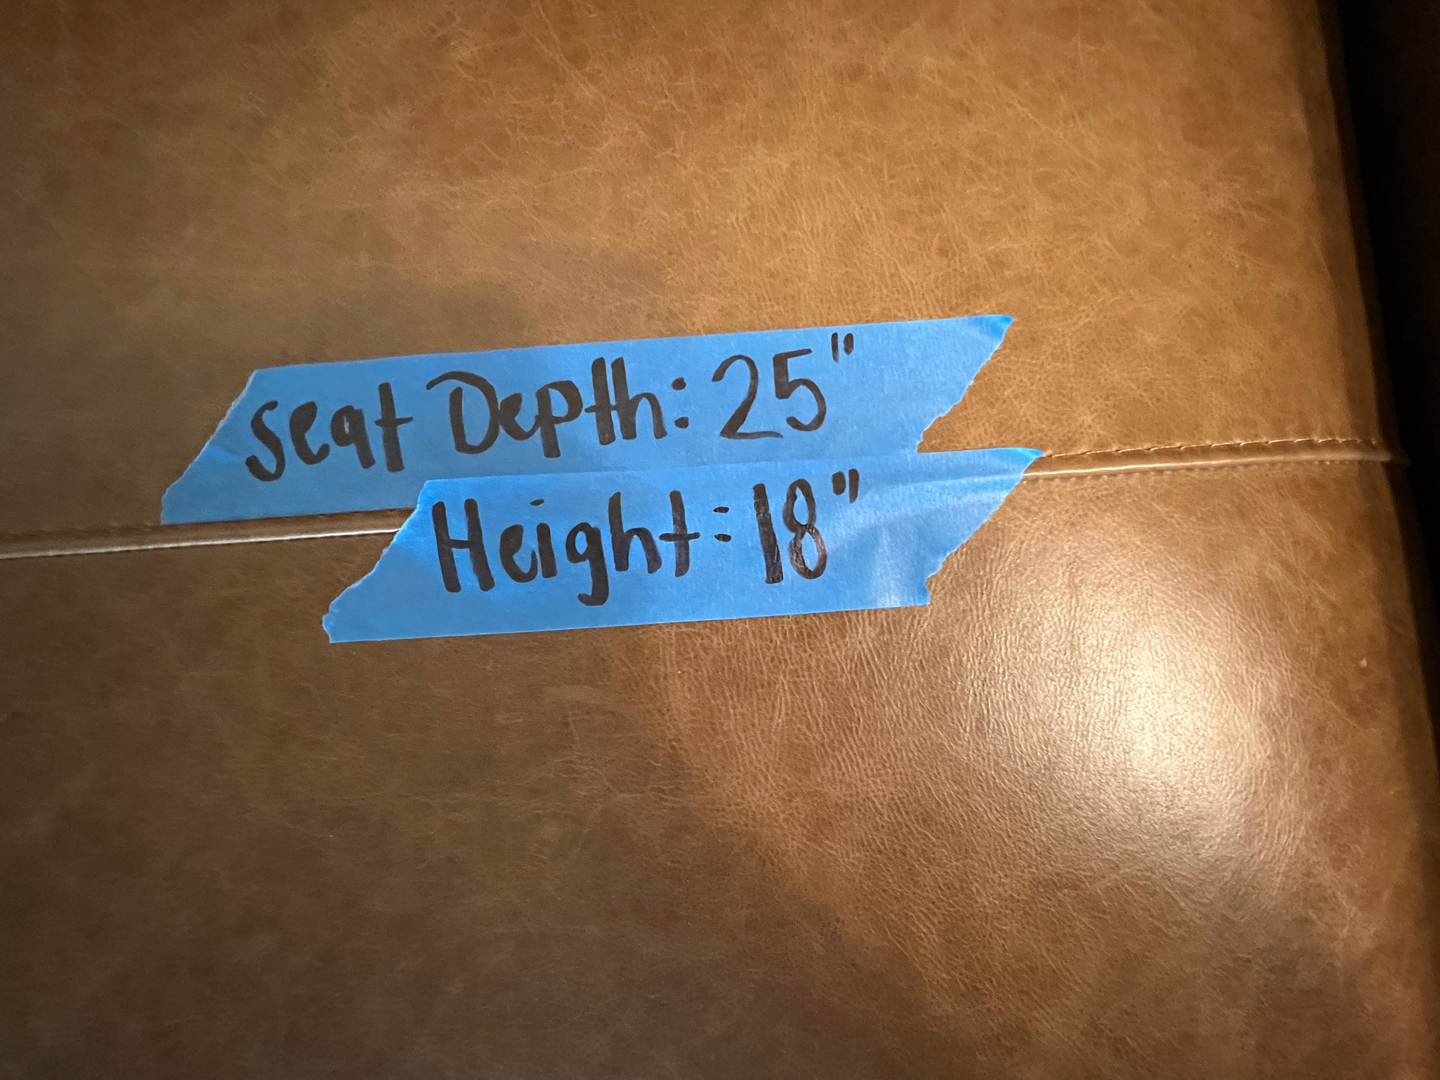 Seat Depth: 25"
Height: 18"